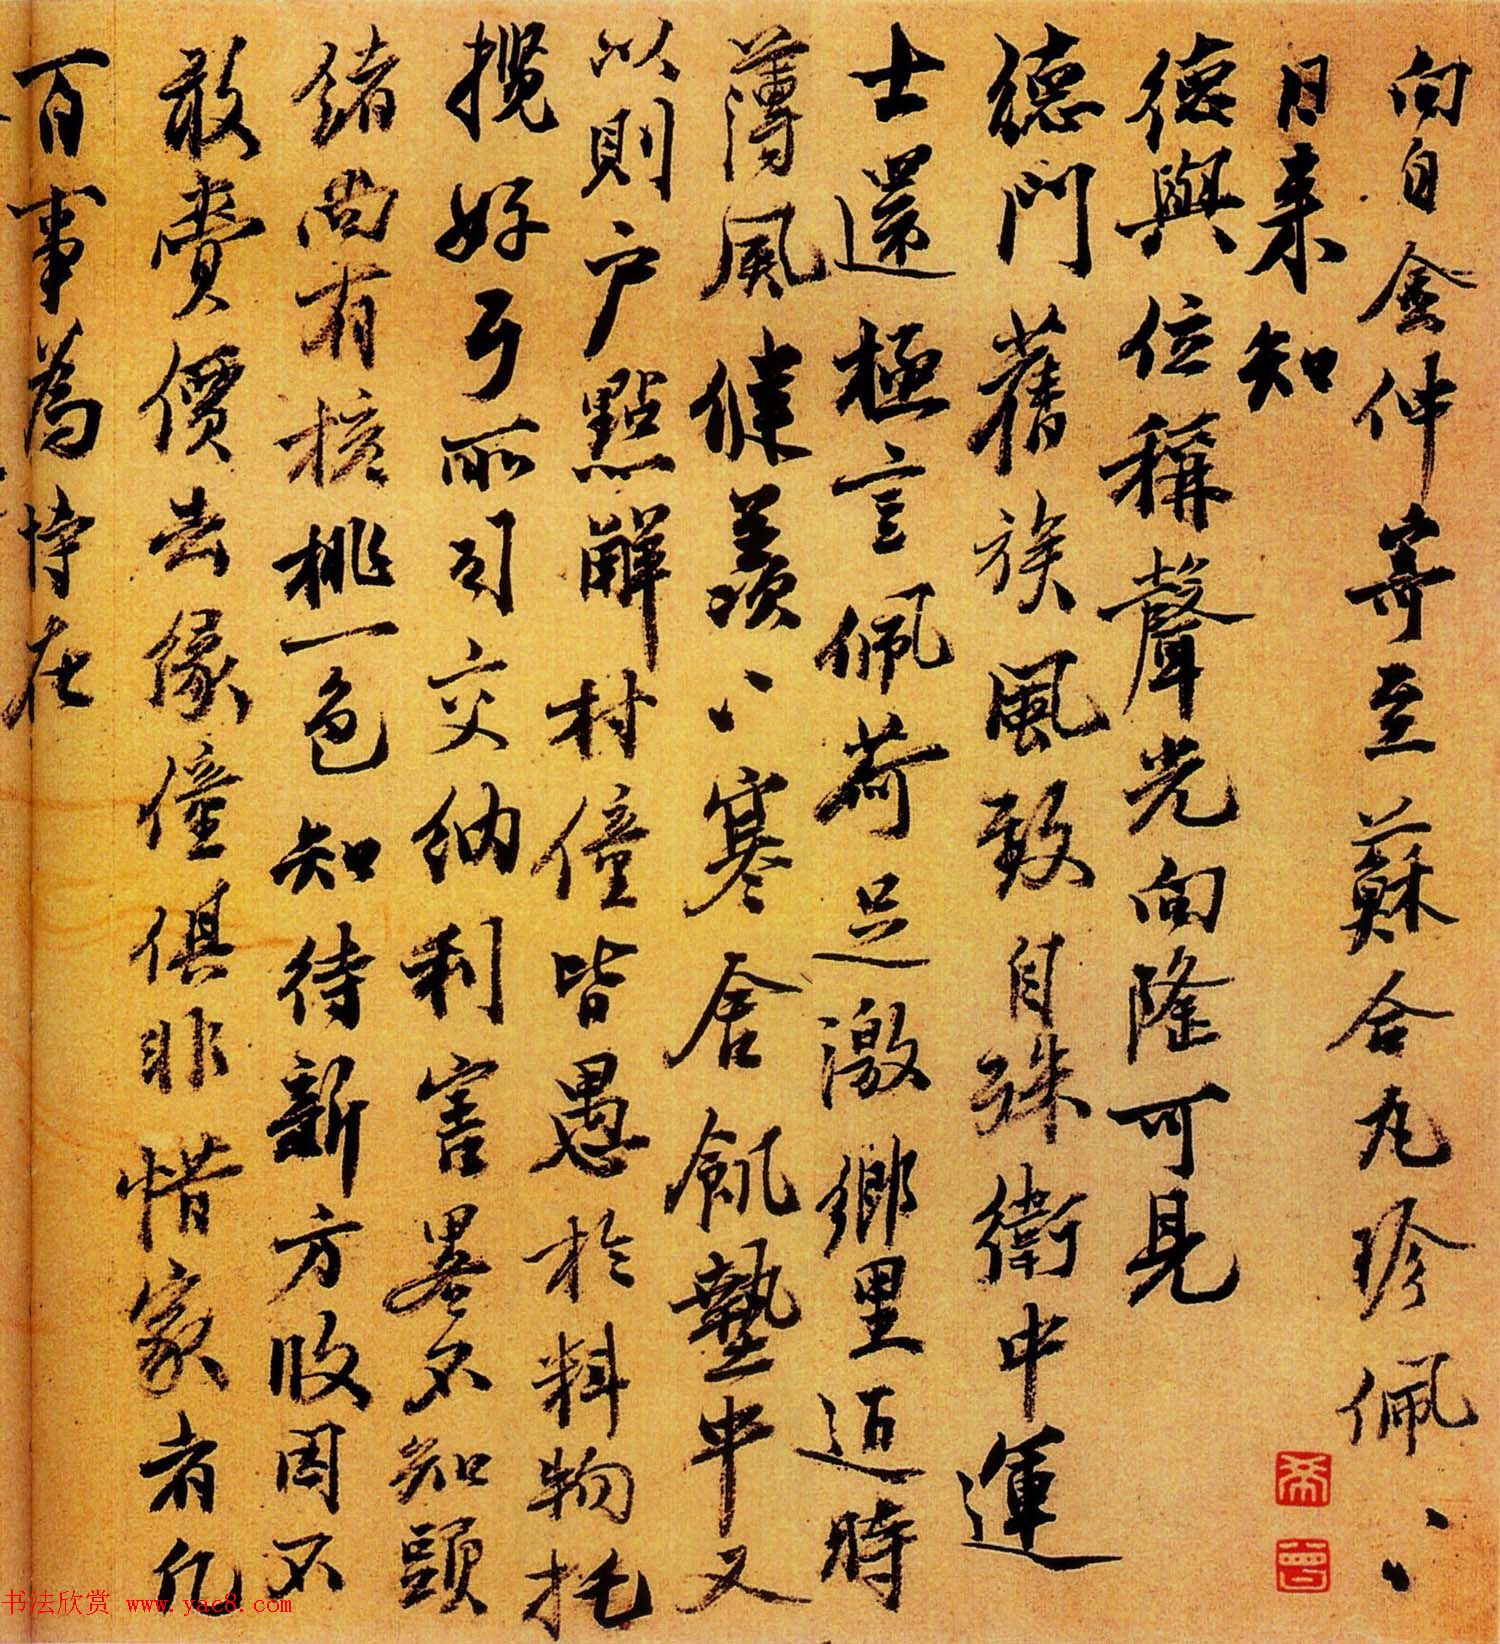 向自金仲寄至蘇合丸珍佩、、
日来知
德與位稱聲光向隆可見
德門舊族風致自殊衛中運
士還極言佩荷足激鄉里邇時
薄風健羨、、寒舍飢墊中又
以則户點解村僮皆愚於料物托
攬好亏所司交納利害畧不知頭
緒而有核桃一色知待新方收因不
敢賣價去緣僮俱非惜家者凡
百事為恃在
书法欣赏 www.yac8.com